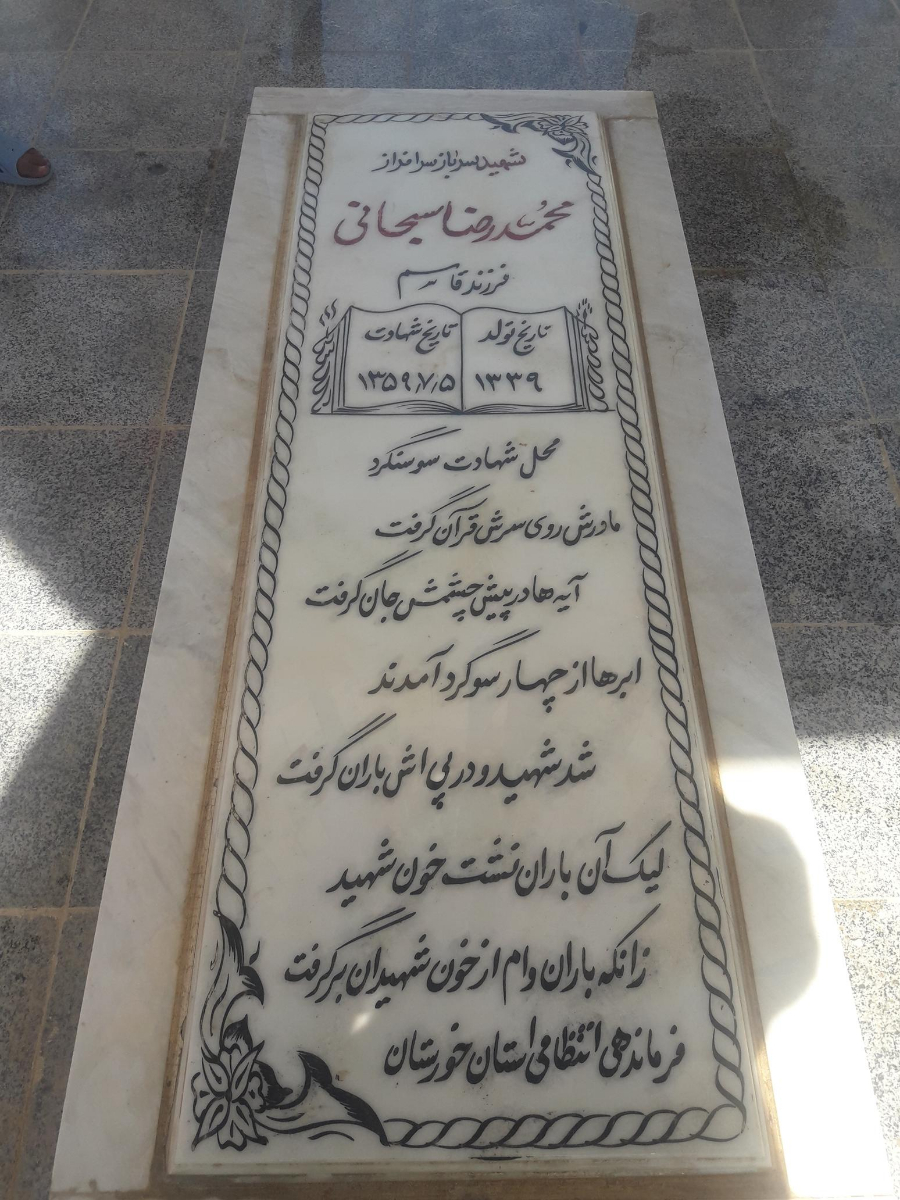 شهید سرباز سرافراز
محمدرضا سبحانی
فرزند قاسم
تاریخ تولد
۱۳۳۹
تاریخ شهادت
۱۳۵۹/۷/۵
محل شهادت سوسنگرد
مادرش روی سرش قرآن گرفت
آیه ها در پیش چشمش جان گرفت
ابرها از چهار سو گرد آمدند
شد شهید و در پی اش باران گرفت
لیک آن باران نشت خون شهید
زانکه باران وام از خون شهیدان برگرفت
فرماندهی انتظامی استان خوزستان